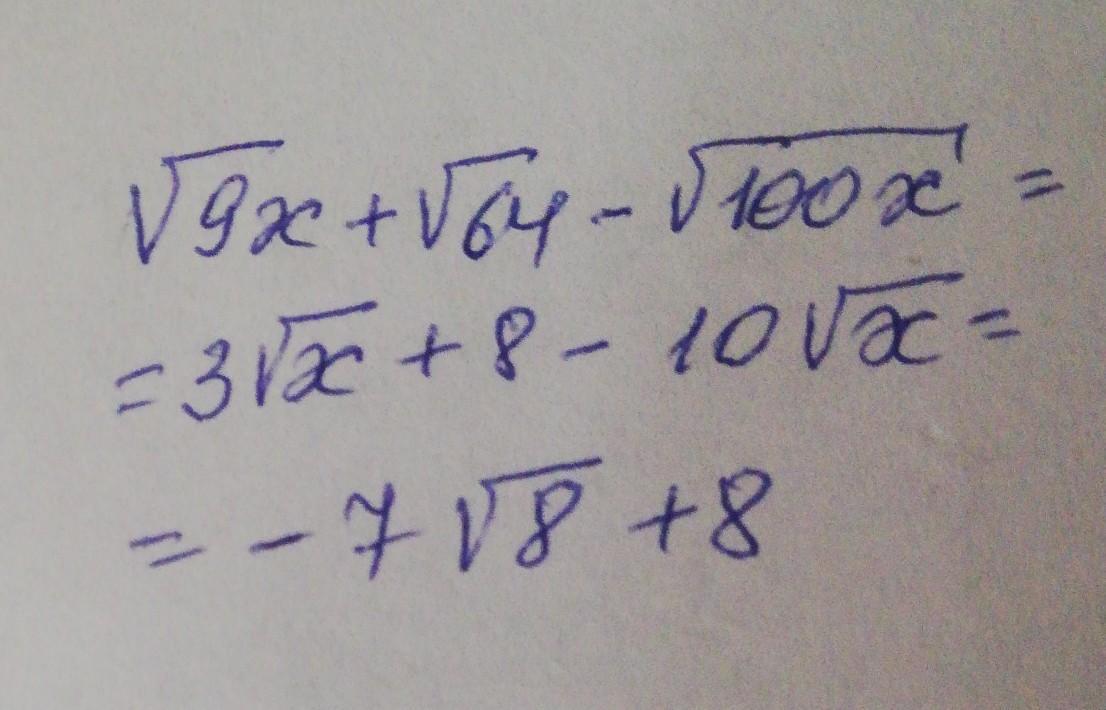 √9x + √64 - √100x =
= 3√x + 8 - 10√x =
= - 7√8 + 8